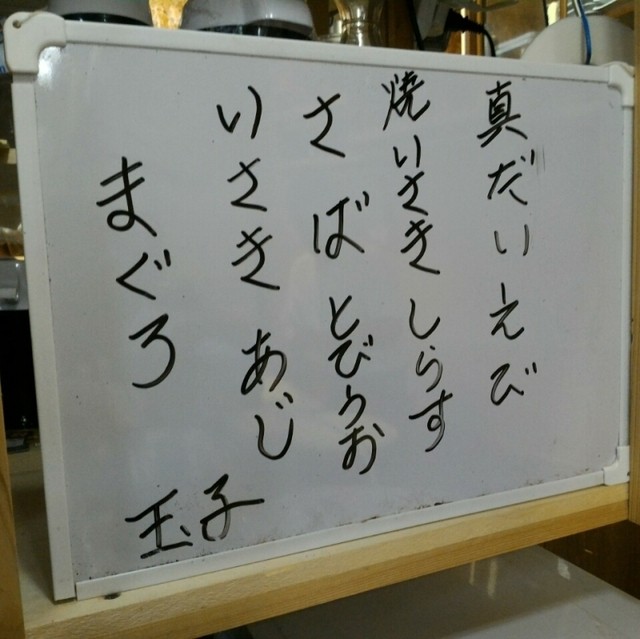 真だい えび
焼いさき しらす
さば とびうお
いさき あじ
まぐろ
玉子